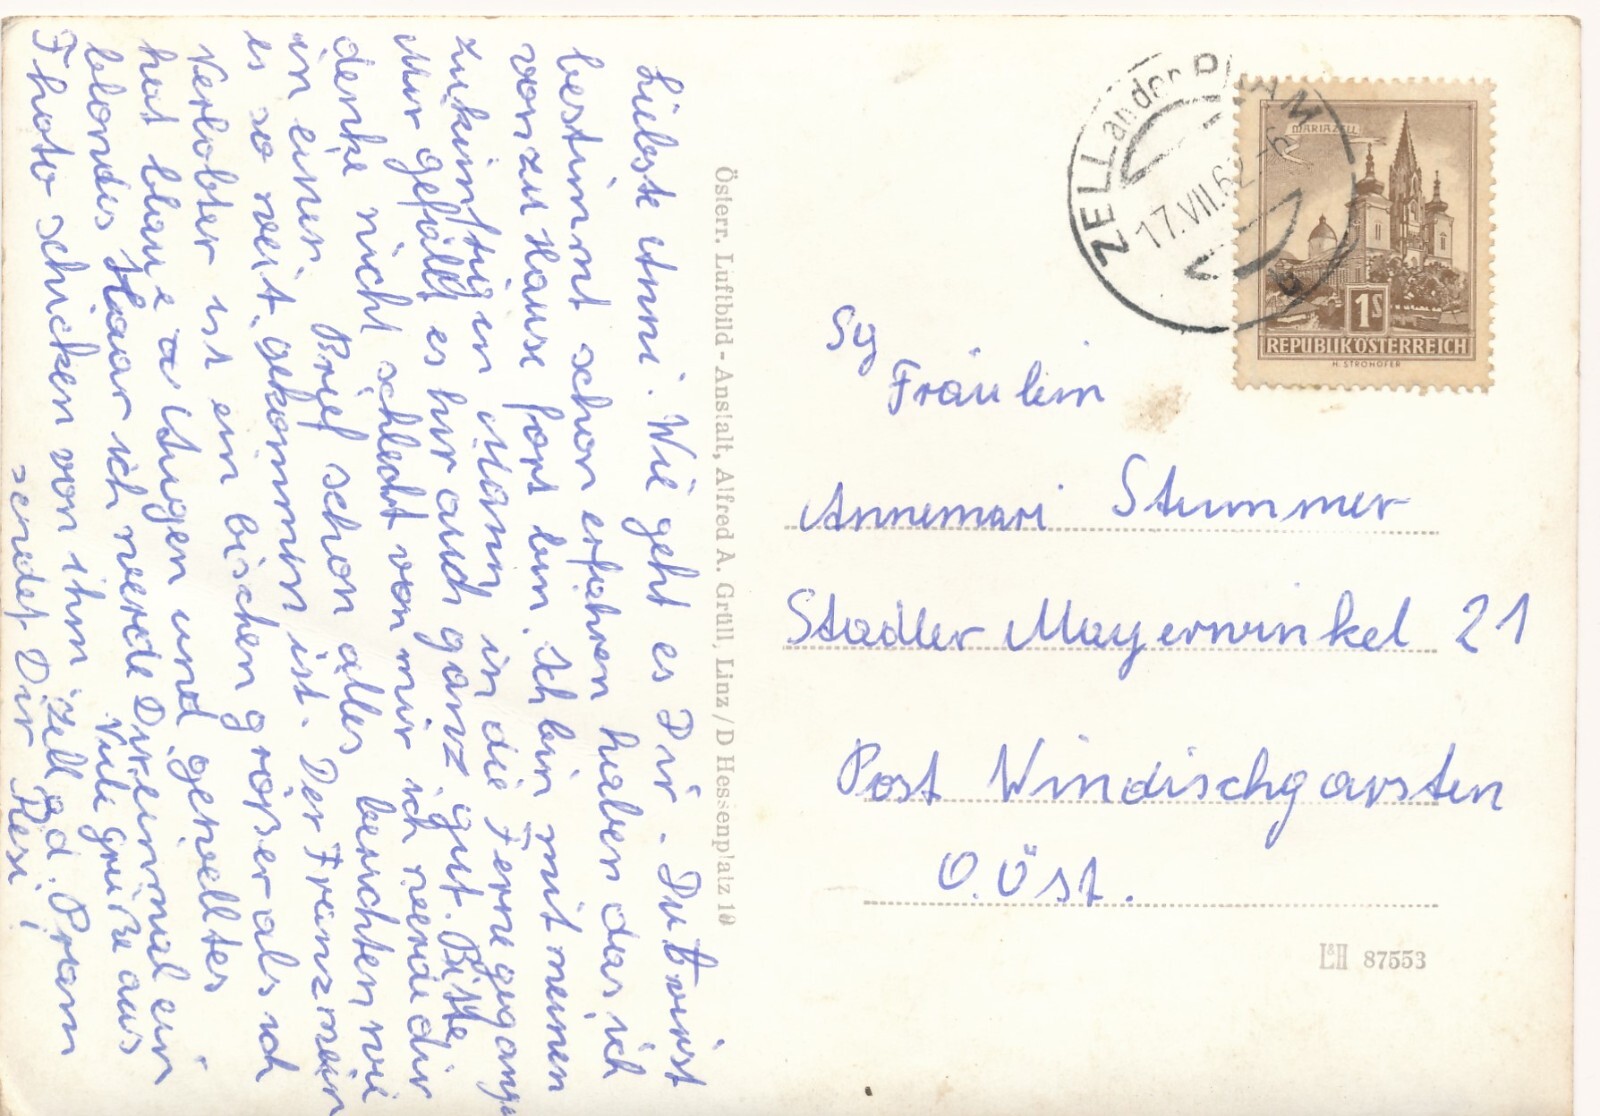 Liebste Anni. Wie geht es Dir. Du wirst
bestimmt schon erfahren haben das ich
von zu Hause fort bin. Ich bin mit meinen
zukünftigen Mann in die Ferne gegangen
Mur gefällt es hir auch ganz gut. Bitte
denke nicht schlecht von mir ich werde dir
in einen Brief schon alles berichten wie
es so weit gekommen ist. Der Franz mein
Verlobter ist ein bischen gröser als ich
hat blaue Augen und gewelltes
blondes Haar ich werde Dir einmal ein
Fhoto schicken von ihm
Viele grüße aus
Zell a. d. Pram
sendet Dir Resi!
Österr. Luftbild-Anstalt, Alfred A. Grüll, Linz/D Hessenplatz 19
ZELL an der PRAM
17.VII.62-6
MARIAZELL
1S
REPUBLIK ÖSTERREICH
H. STROHOFER
Fräulein
Annemari Stummer
Stadler Mayerwinkel 21
Post Windischgarsten
O.Öst.
L&H 87553